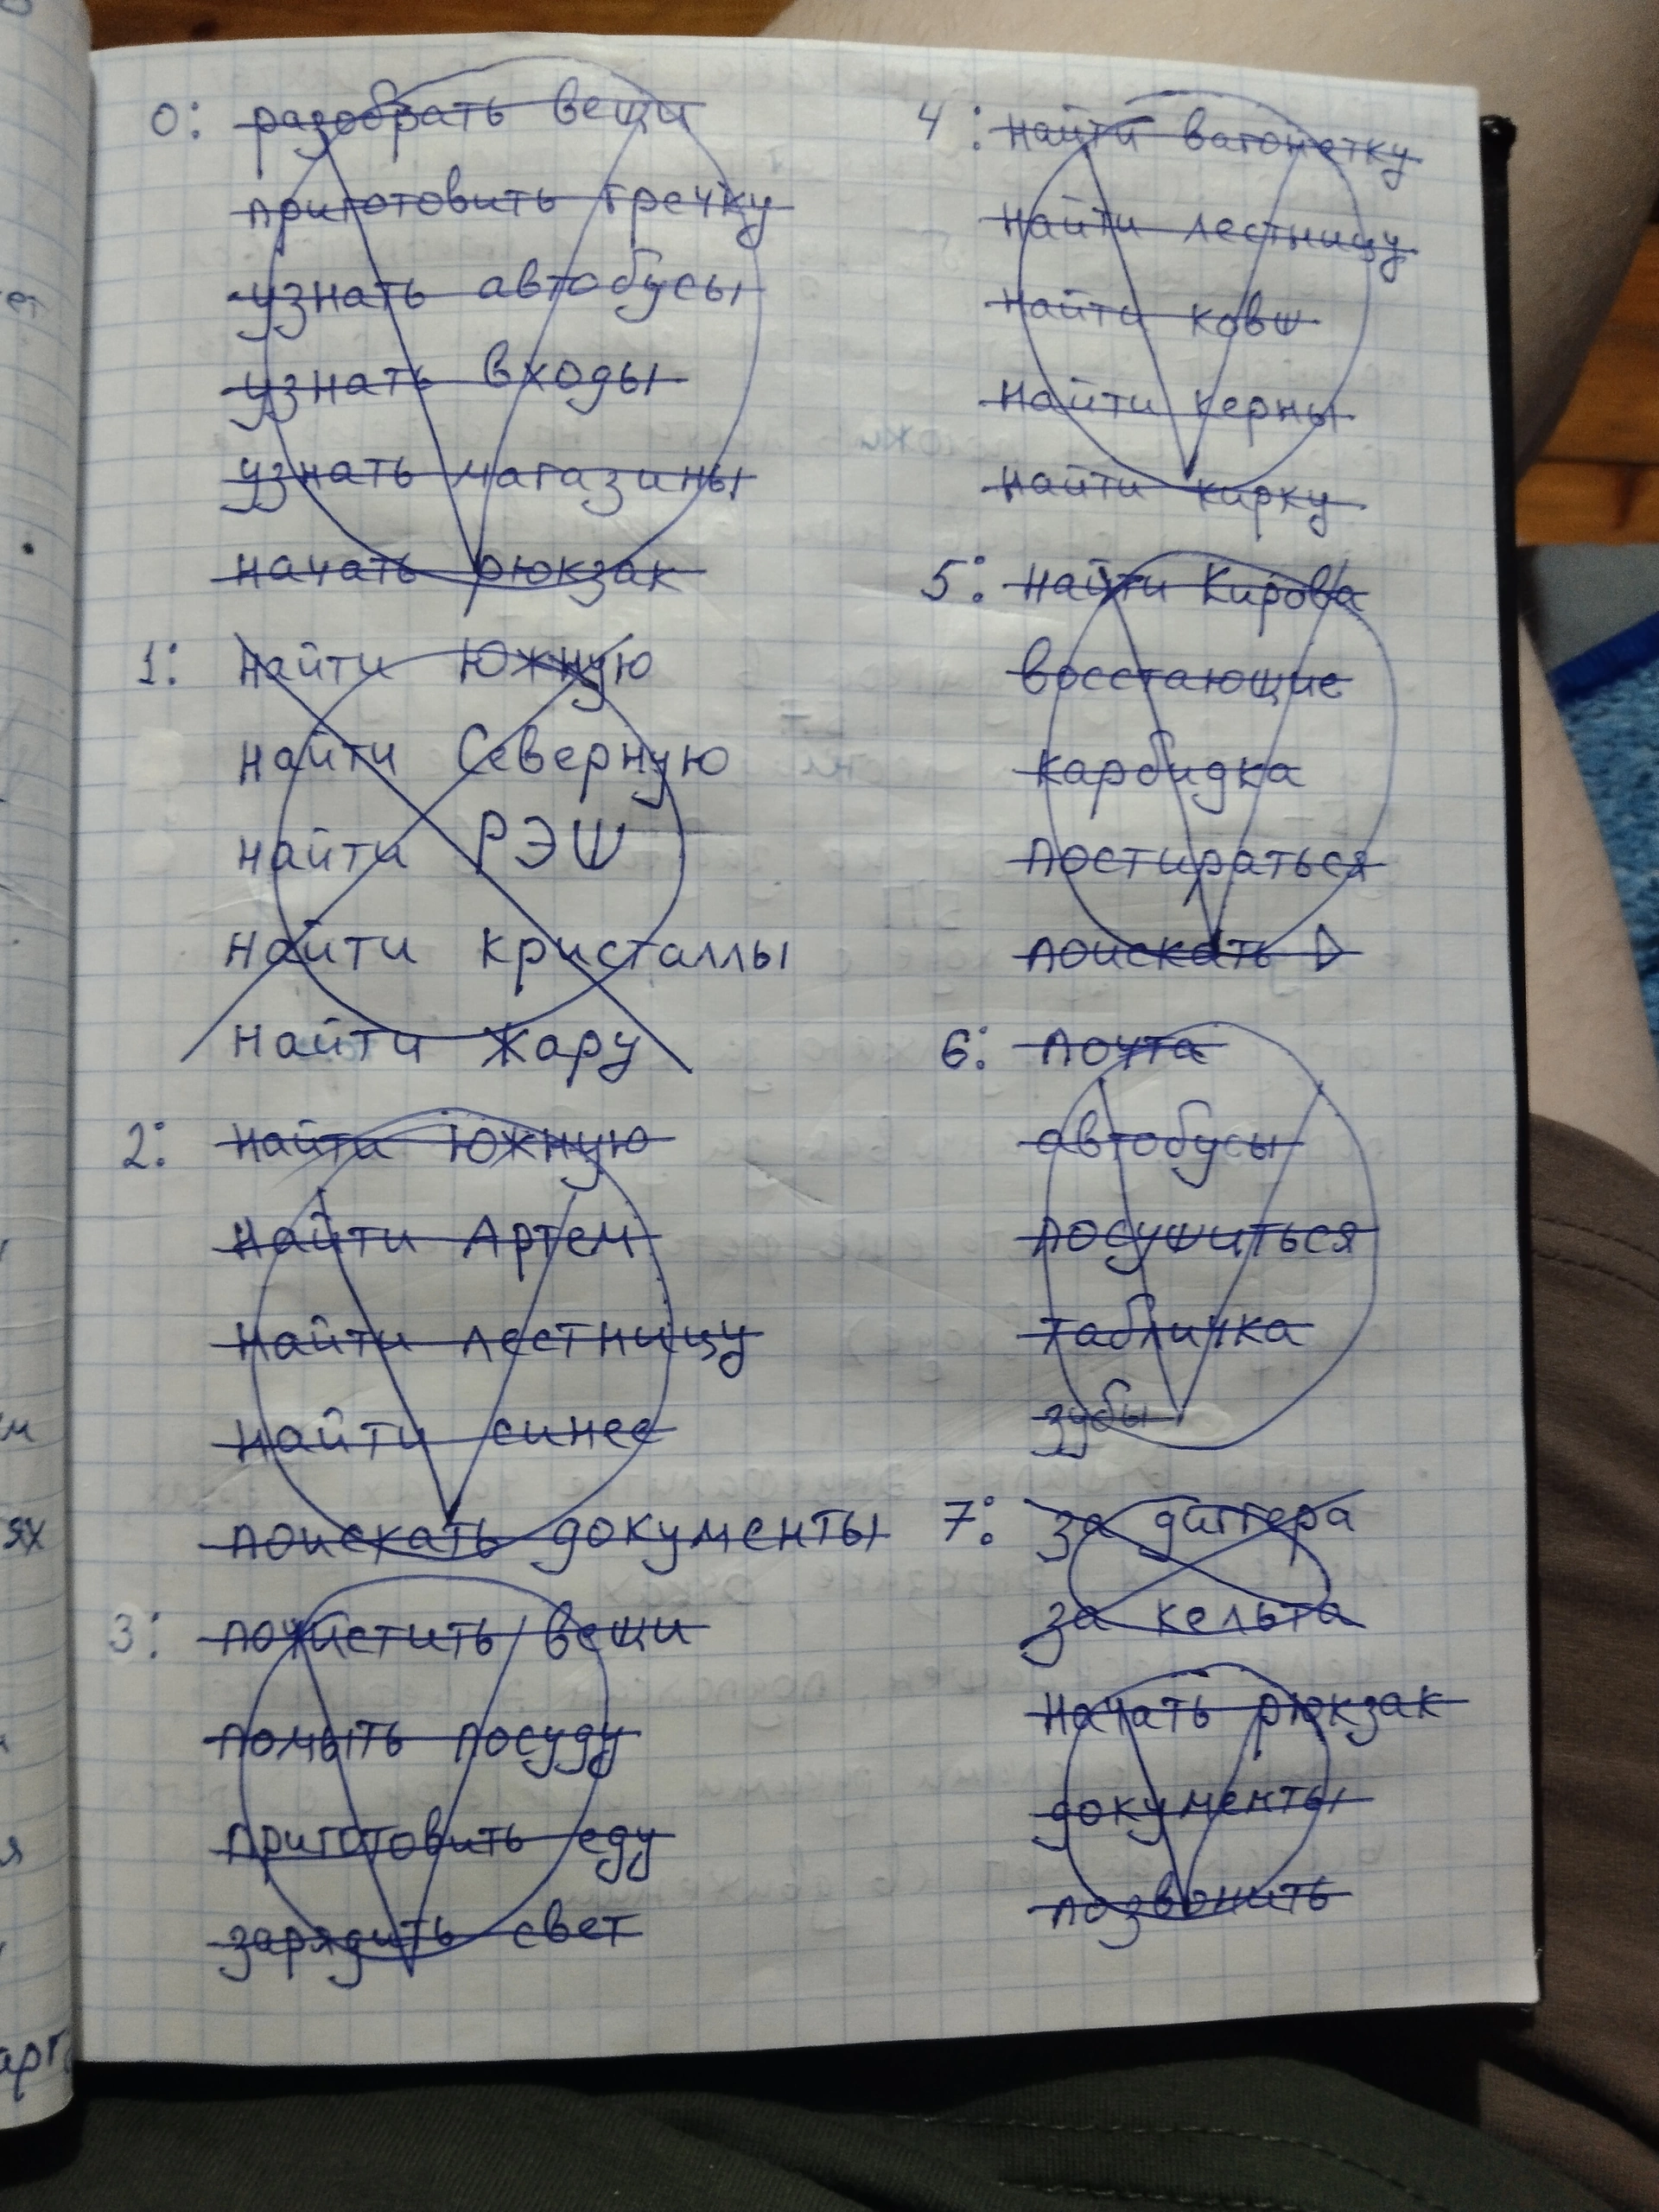 0: разобрать вещи
приготовить гречку
узнать автобусы
узнать входы
узнать магазины
начать рюкзак
1: найти Южную
найти Северную
найти РЭШ
найти кристаллы
найти Жару
2: найти Южную
найти Артем
найти лестницу
найти синее
поискать документы
3: почистить вещи
помыть посуду
приготовить еду
зарядить свет
4: найти вагонетку
найти лестницу
найти ковш
найти керны
найти кирку
5: найти Кирова
восстающие
карбидка
постираться
поискать
6: почта
автобусы
посушиться
табличка
зубы
7: за диггера
за кельта
начать рюкзак
документы
позвонить